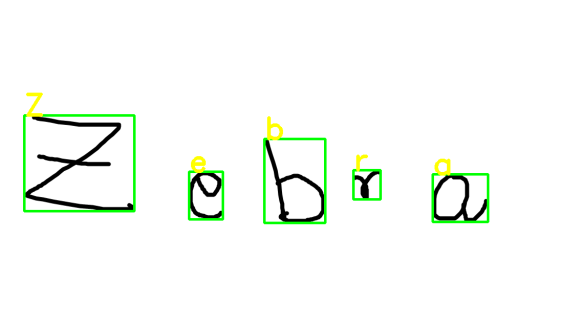 Z e b r a
Z e b r a